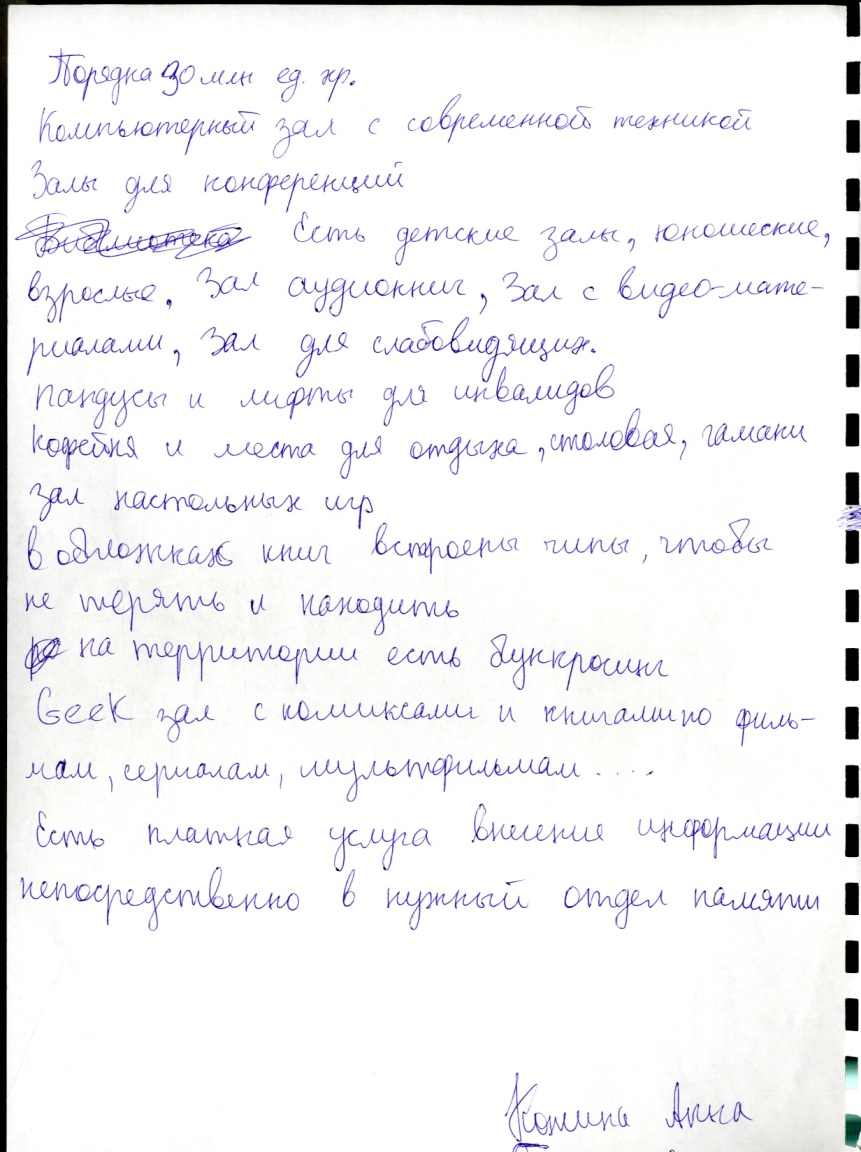 Порядка 30 млн ед. хр.
Компьютерный зал с современной техникой
Залы для конференций
Библиотека Есть детские залы, юношеские,
взрослые, Зал аудиокниг, Зал с видео-мате-
риалами, Зал для слабовидящих.
Пандусы и лифты для инвалидов
Кофейня и места для отдыха, столовая, гамаки
зал настольных игр
в обложках книг встроены чипы, чтобы
не терять и находить
на территории есть буккросинг
Geek зал с комиксами и книгами по филь-
мам, сериалам, мультфильмам ....
Есть платная услуга внесения информации
непосредственно в нужный отдел памяти
Анна